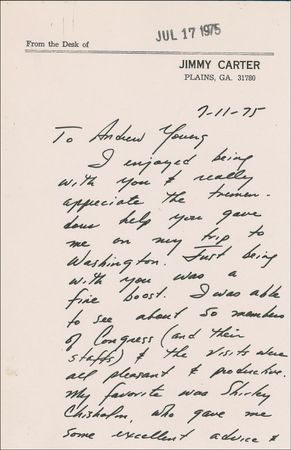 JUL 17 1975
From the Desk of
JIMMY CARTER
PLAINS, GA. 31780
7-11-75
To Andrew Young
I enjoyed being
with you & really
appreciate the tremen-
dous help you gave
me on my trip to
Washington. Just being
with you was a
fine boost. I was able
to see about 50 members
of Congress (and their
staffs) & the visits were
all pleasant & productive.
My favorite was Shirley
Chisholm, who gave me
some excellent advice &